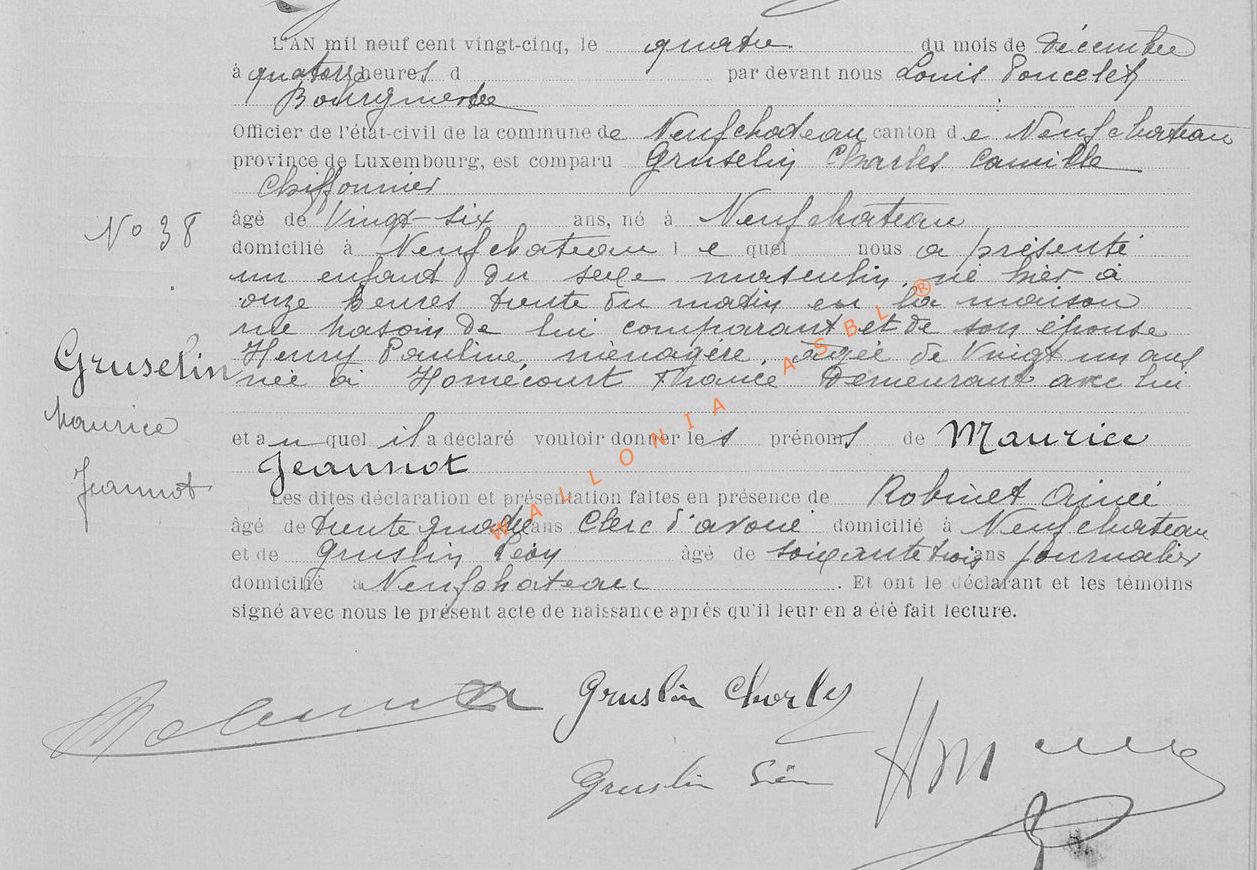 L'AN mil neuf cent vingt-cinq, le quatre du mois de Décembre
à quatorze heures d par devant nous Louis Poncelet
Bourgmestre
Officier de l'état-civil de la commune de Neufchateau canton d e Neufchateau
province de Luxembourg, est comparu Gruselin Charles Camille
Chiffonnier
N° 38
âgé de Vingt-six ans, né à Neufchateau
domicilié à Neufchateau l e quel nous a présenté
un enfant du sexe masculin, né hier à
onze heures trente du matin en la maison
rue de lui comparant et de son épouse
Gruselin
Henry Pauline, ménagère, agée de Vingt un ans
née à Homécourt France Demeurant avec lui
Maurice
et a u quel il a déclaré vouloir donner le s prénoms de Maurice
Jeannot
Jeannot
Les dites déclaration et présentation faites en présence de Robinet Aimé
âgé de trente quatre ans Clerc d'avoué domicilié à Neufchateau
et de Gruslin Léon âgé de soixante trois ans Journalier
domicilié à Neufchateau . Et ont le déclarant et les témoins
signé avec nous le présent acte de naissance après qu'il leur en a été fait lecture.
WALLONIA ASBL ®
Gruslin Charles
Gruslin Léon